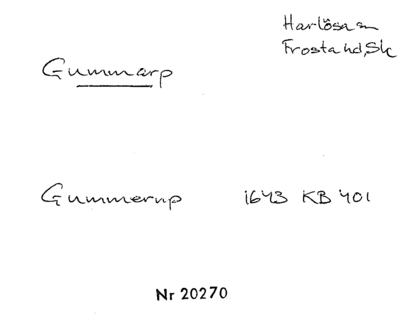 Harlösa sn
Frosta hd, Sk
Gummarp
Gummerup 1643 KB 401
Nr 20270